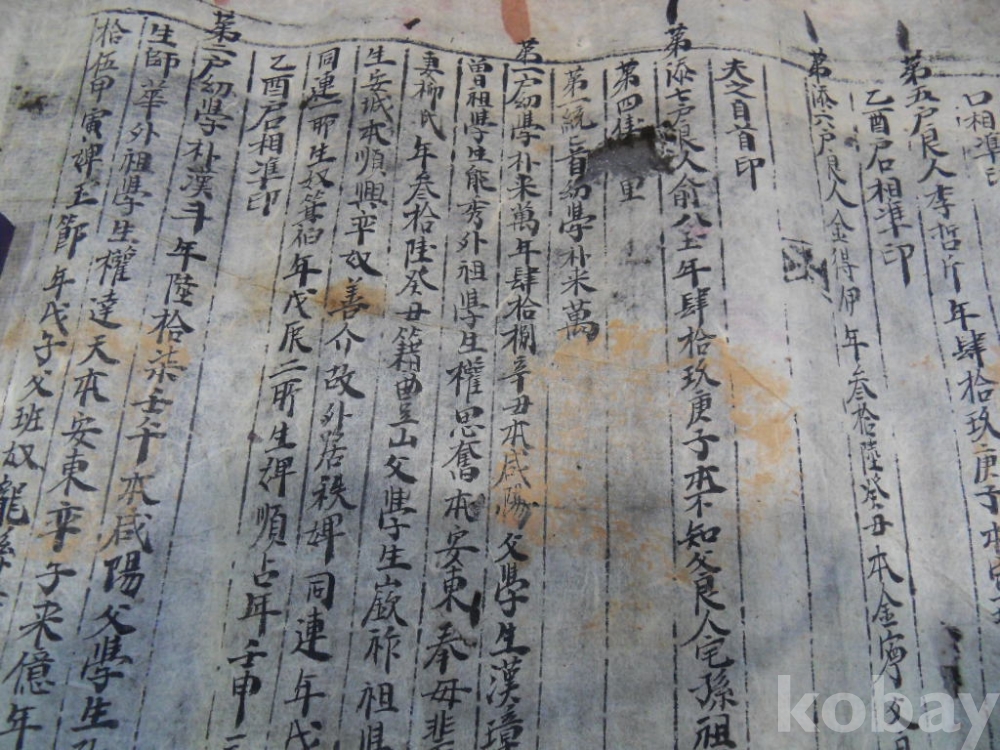 口相準印
第五戶良人李哲 年肆拾玖庚子本
乙酉戶口相準印
第添六戶良人金得伊年叁拾陸癸丑本金寧父
夫之自首印
第添七戶良人俞公 年肆拾玖庚子本不知父良人 孫祖
第四 里
第一統首幼學朴来萬
第一戶幼學朴来萬年肆拾捌辛丑本咸陽父學生漢璋
曾祖學生能秀外祖學生權思奮本安東奉母
妻柳氏年叁拾陸癸丑籍豊山父學生 祚祖學
生安 本順興率奴善介故外居秩婢同連年戊
同連一所生奴 年戊辰二所生婢順占年壬申
乙酉戶口相準印
第二戶幼學朴漢斗年陸拾柒壬午本咸陽父學生
生師華外祖學生權達天本安東率子来億年
拾伍甲寅婢玉節年戊子父班奴龍
kobay